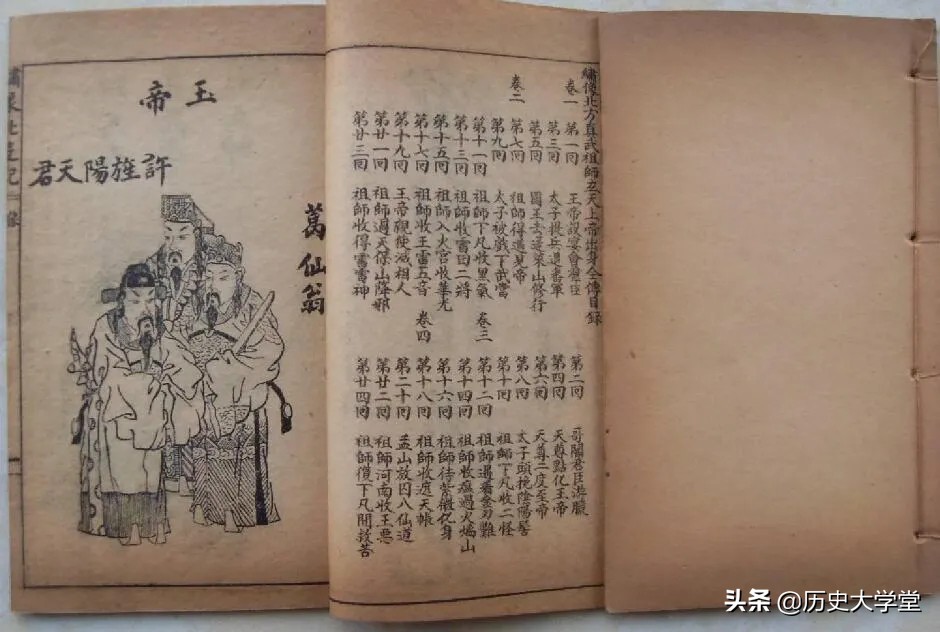 繡像北方真武祖師玄天上帝出身全傳目錄
卷一
第一回 玉帝設宴會羣臣 第二回 哥闍君臣遊獵
第三回 太子提兵退軍 第四回 天尊點化玉帝
第五回 國王去蓬萊山修行 第六回 天尊二度玉帝
卷二
第七回 祖師得道見帝 第八回 太子頭挽陰陽髻
第九回 太子被戲下武當 第十回 祖師下凡收二怪
第十一回 祖師下凡收黑氣 卷三 第十二回 祖師遇着金刀難
第十三回 祖師收雷田二將 第十四回 祖師收瘟過火熖山
第十五回 祖師入火宮收華光 第十六回 祖師待紫微化身
第十七回 祖師收王雷五音 卷四 第十八回 祖師收遮天帳
第十九回 玉帝觀使滅相人 第二十回 孟山放囚八仙道
第廿一回 祖師過天保山降邪 第廿二回 祖師河南收王惡
第廿三回 祖師收得雷神 第廿四回 祖師復下凡間救苦
葛仙翁
玉帝
許旌陽天君
繡像北遊記
頭条 @历史大学堂